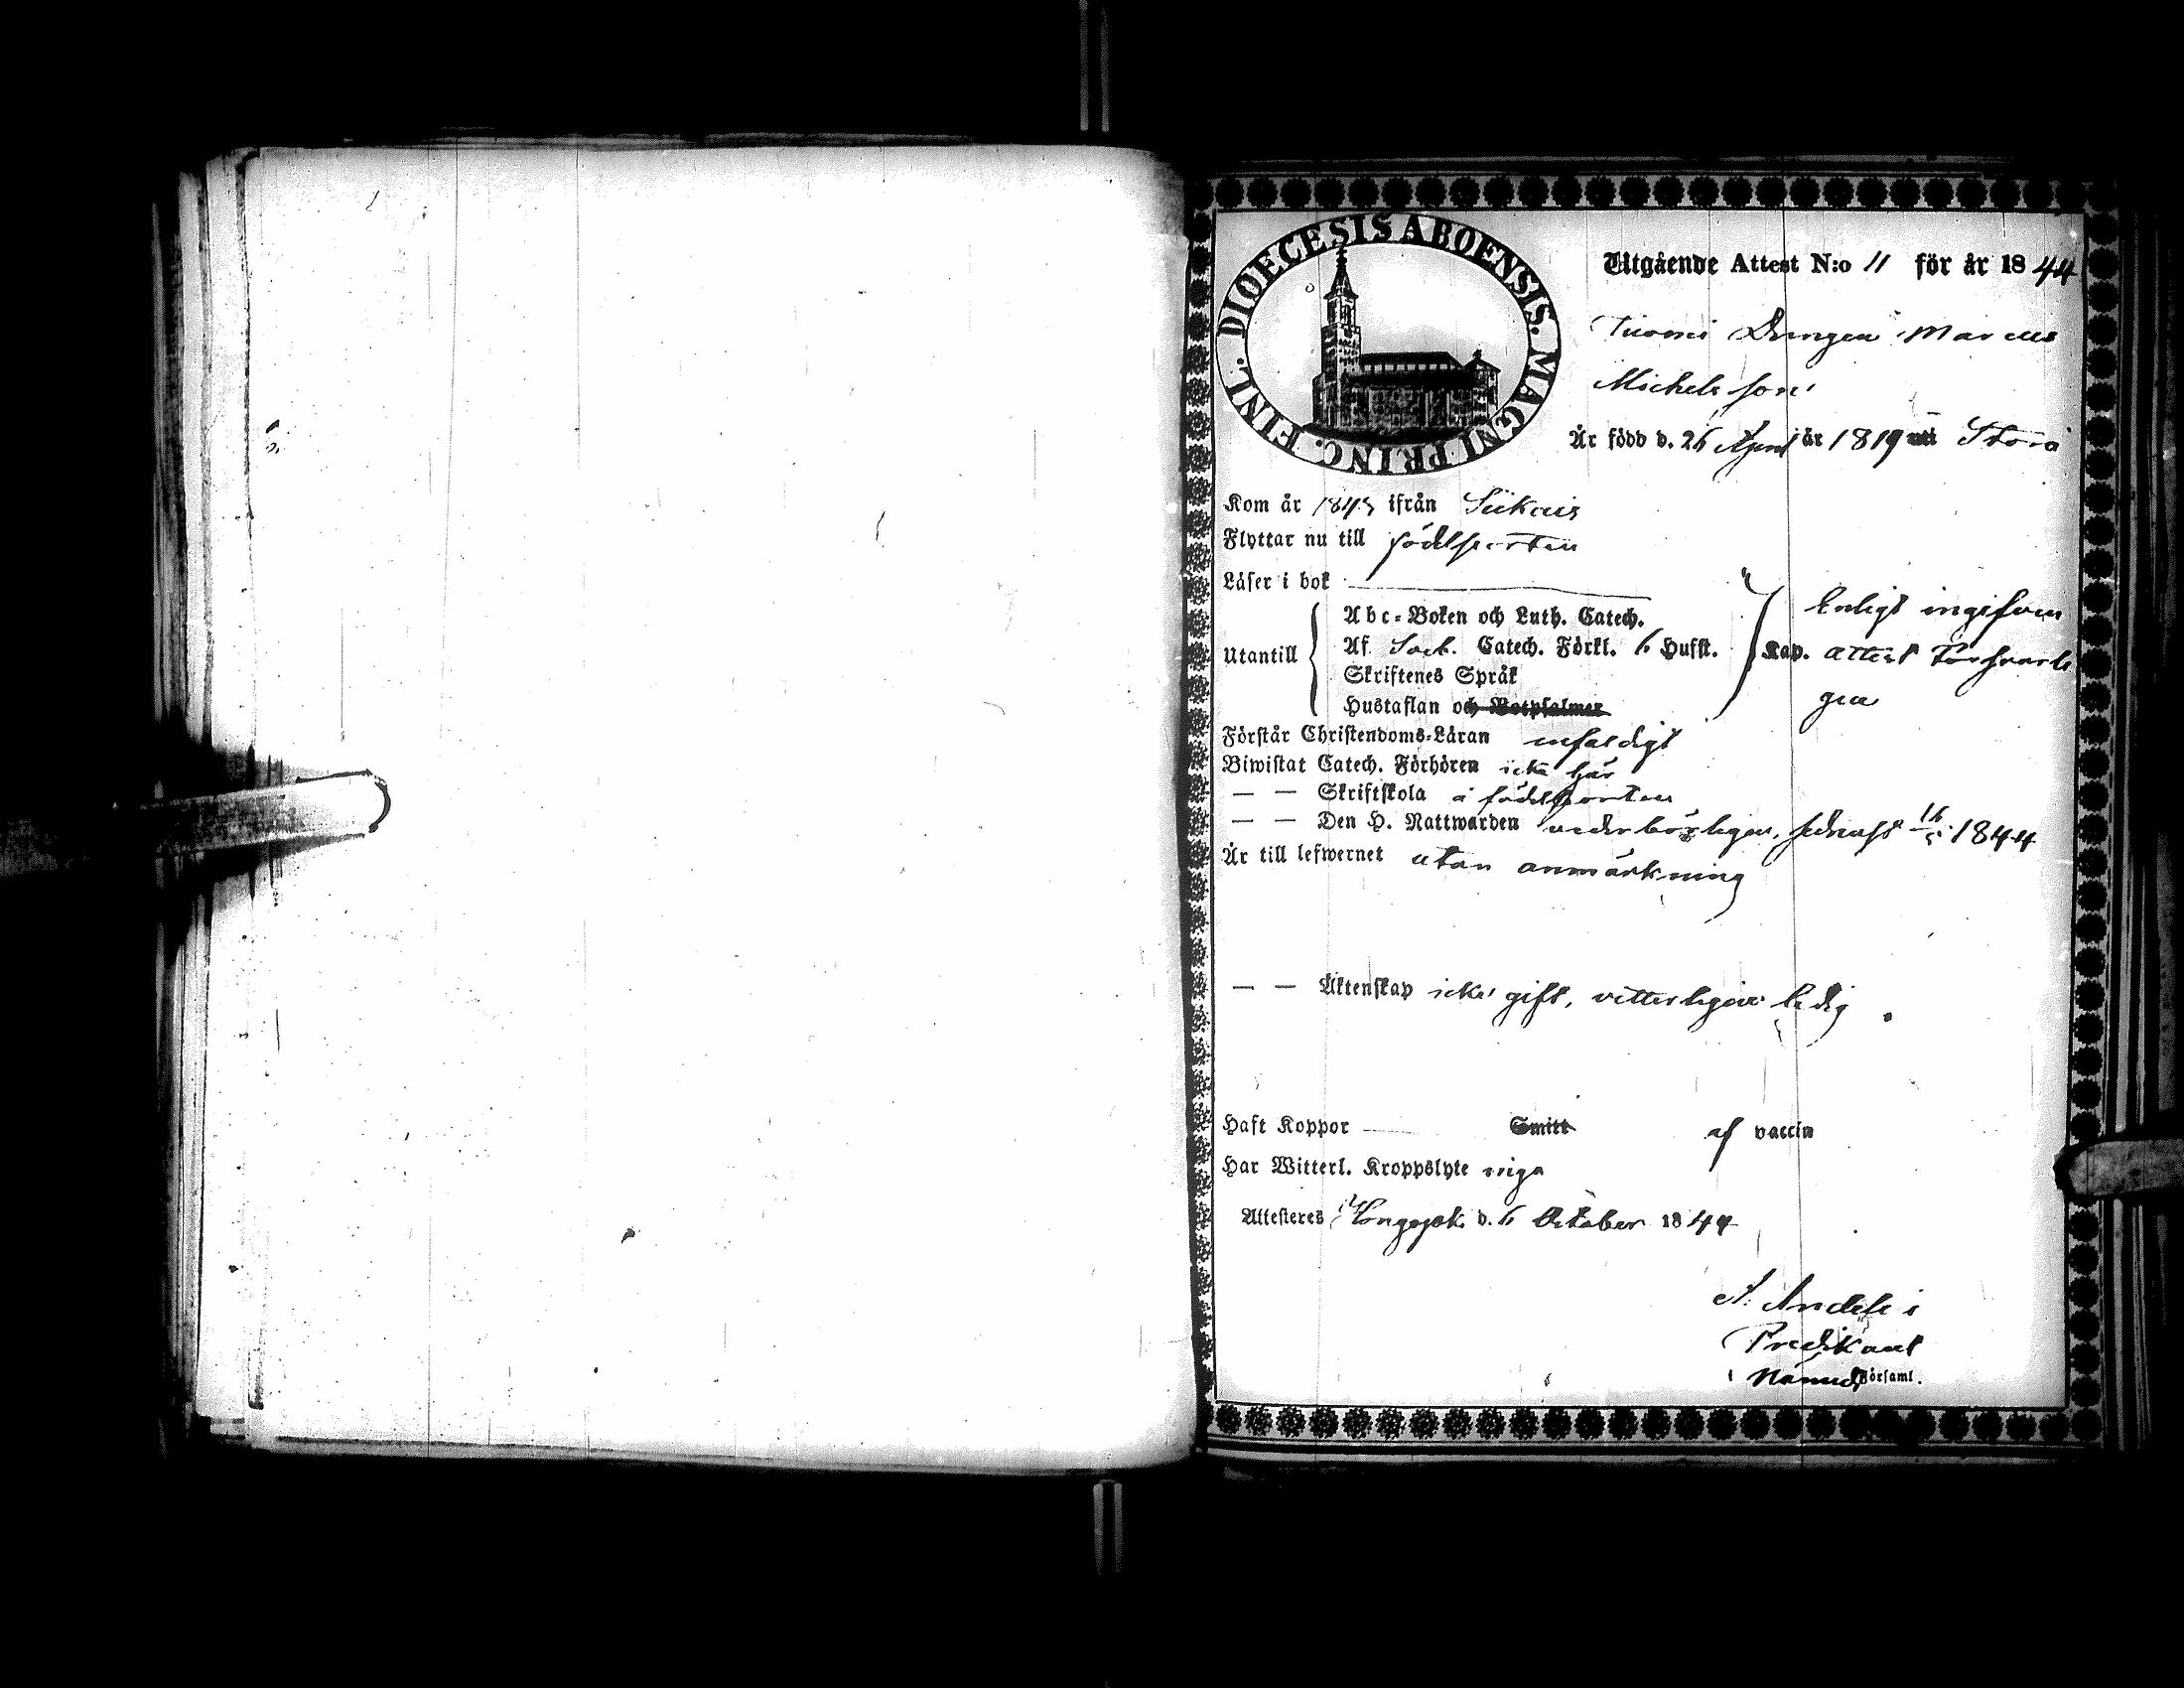 DIOECESIS ABOENSIS. MAGNI PRINC. FINL.
Utgående Attest N:o 11 för år 1844
Tuomi Drengen Marcus
Michelsson
Är född d. 26 April år 1819 uti Storå
Kom år 1843 ifrån Siikais
Flyttar nu till födelseorten
Läser i bok
Utantill
Abc-Boken och Luth. Catech.
Af Catech. Förkl. 6 Hufst. Kap.
Skriftenes Språk
Hustaflan och Botpsalmer
Enligt ingifven
attest försvarli
gen
Förstår Christendoms-Läran enfaldigt
Biwistat Catech. Förhören icke här
— — Skriftskola å födelseorten
— — Den H. Nattwarden vederbörligen, sednast 1844
Är till lefwernet utan anmärkning
— — Äktenskap icke gift, vitterligen ledig.
Haft Koppor Smitt af vaccin
Har Witterl. Kroppslyte inga
Attesteres d. 6 October 1844
Predikant
i Församl.